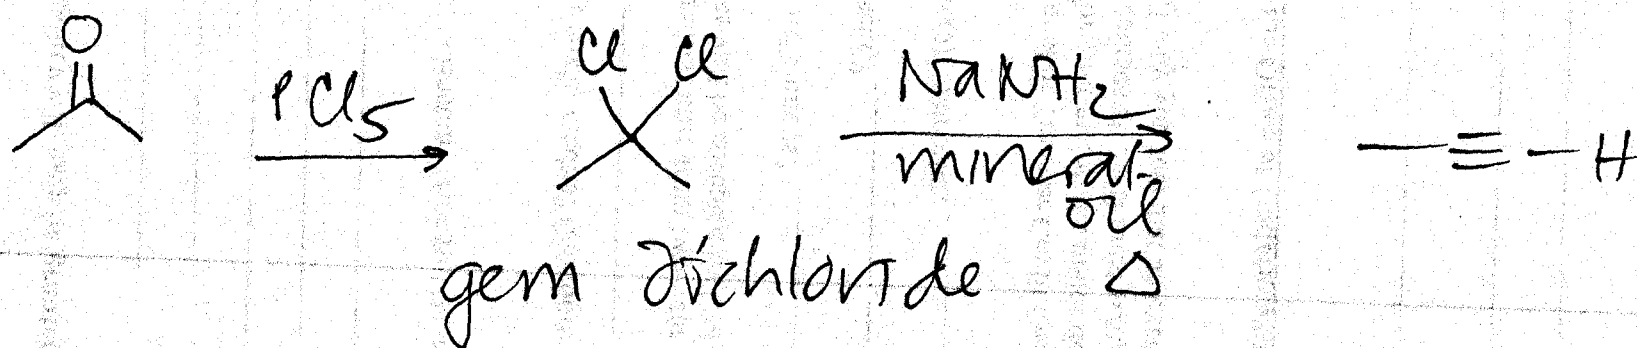 O
PCl5
Cl Cl
NaNH2
mineral
oil
Δ
H
gem dichloride